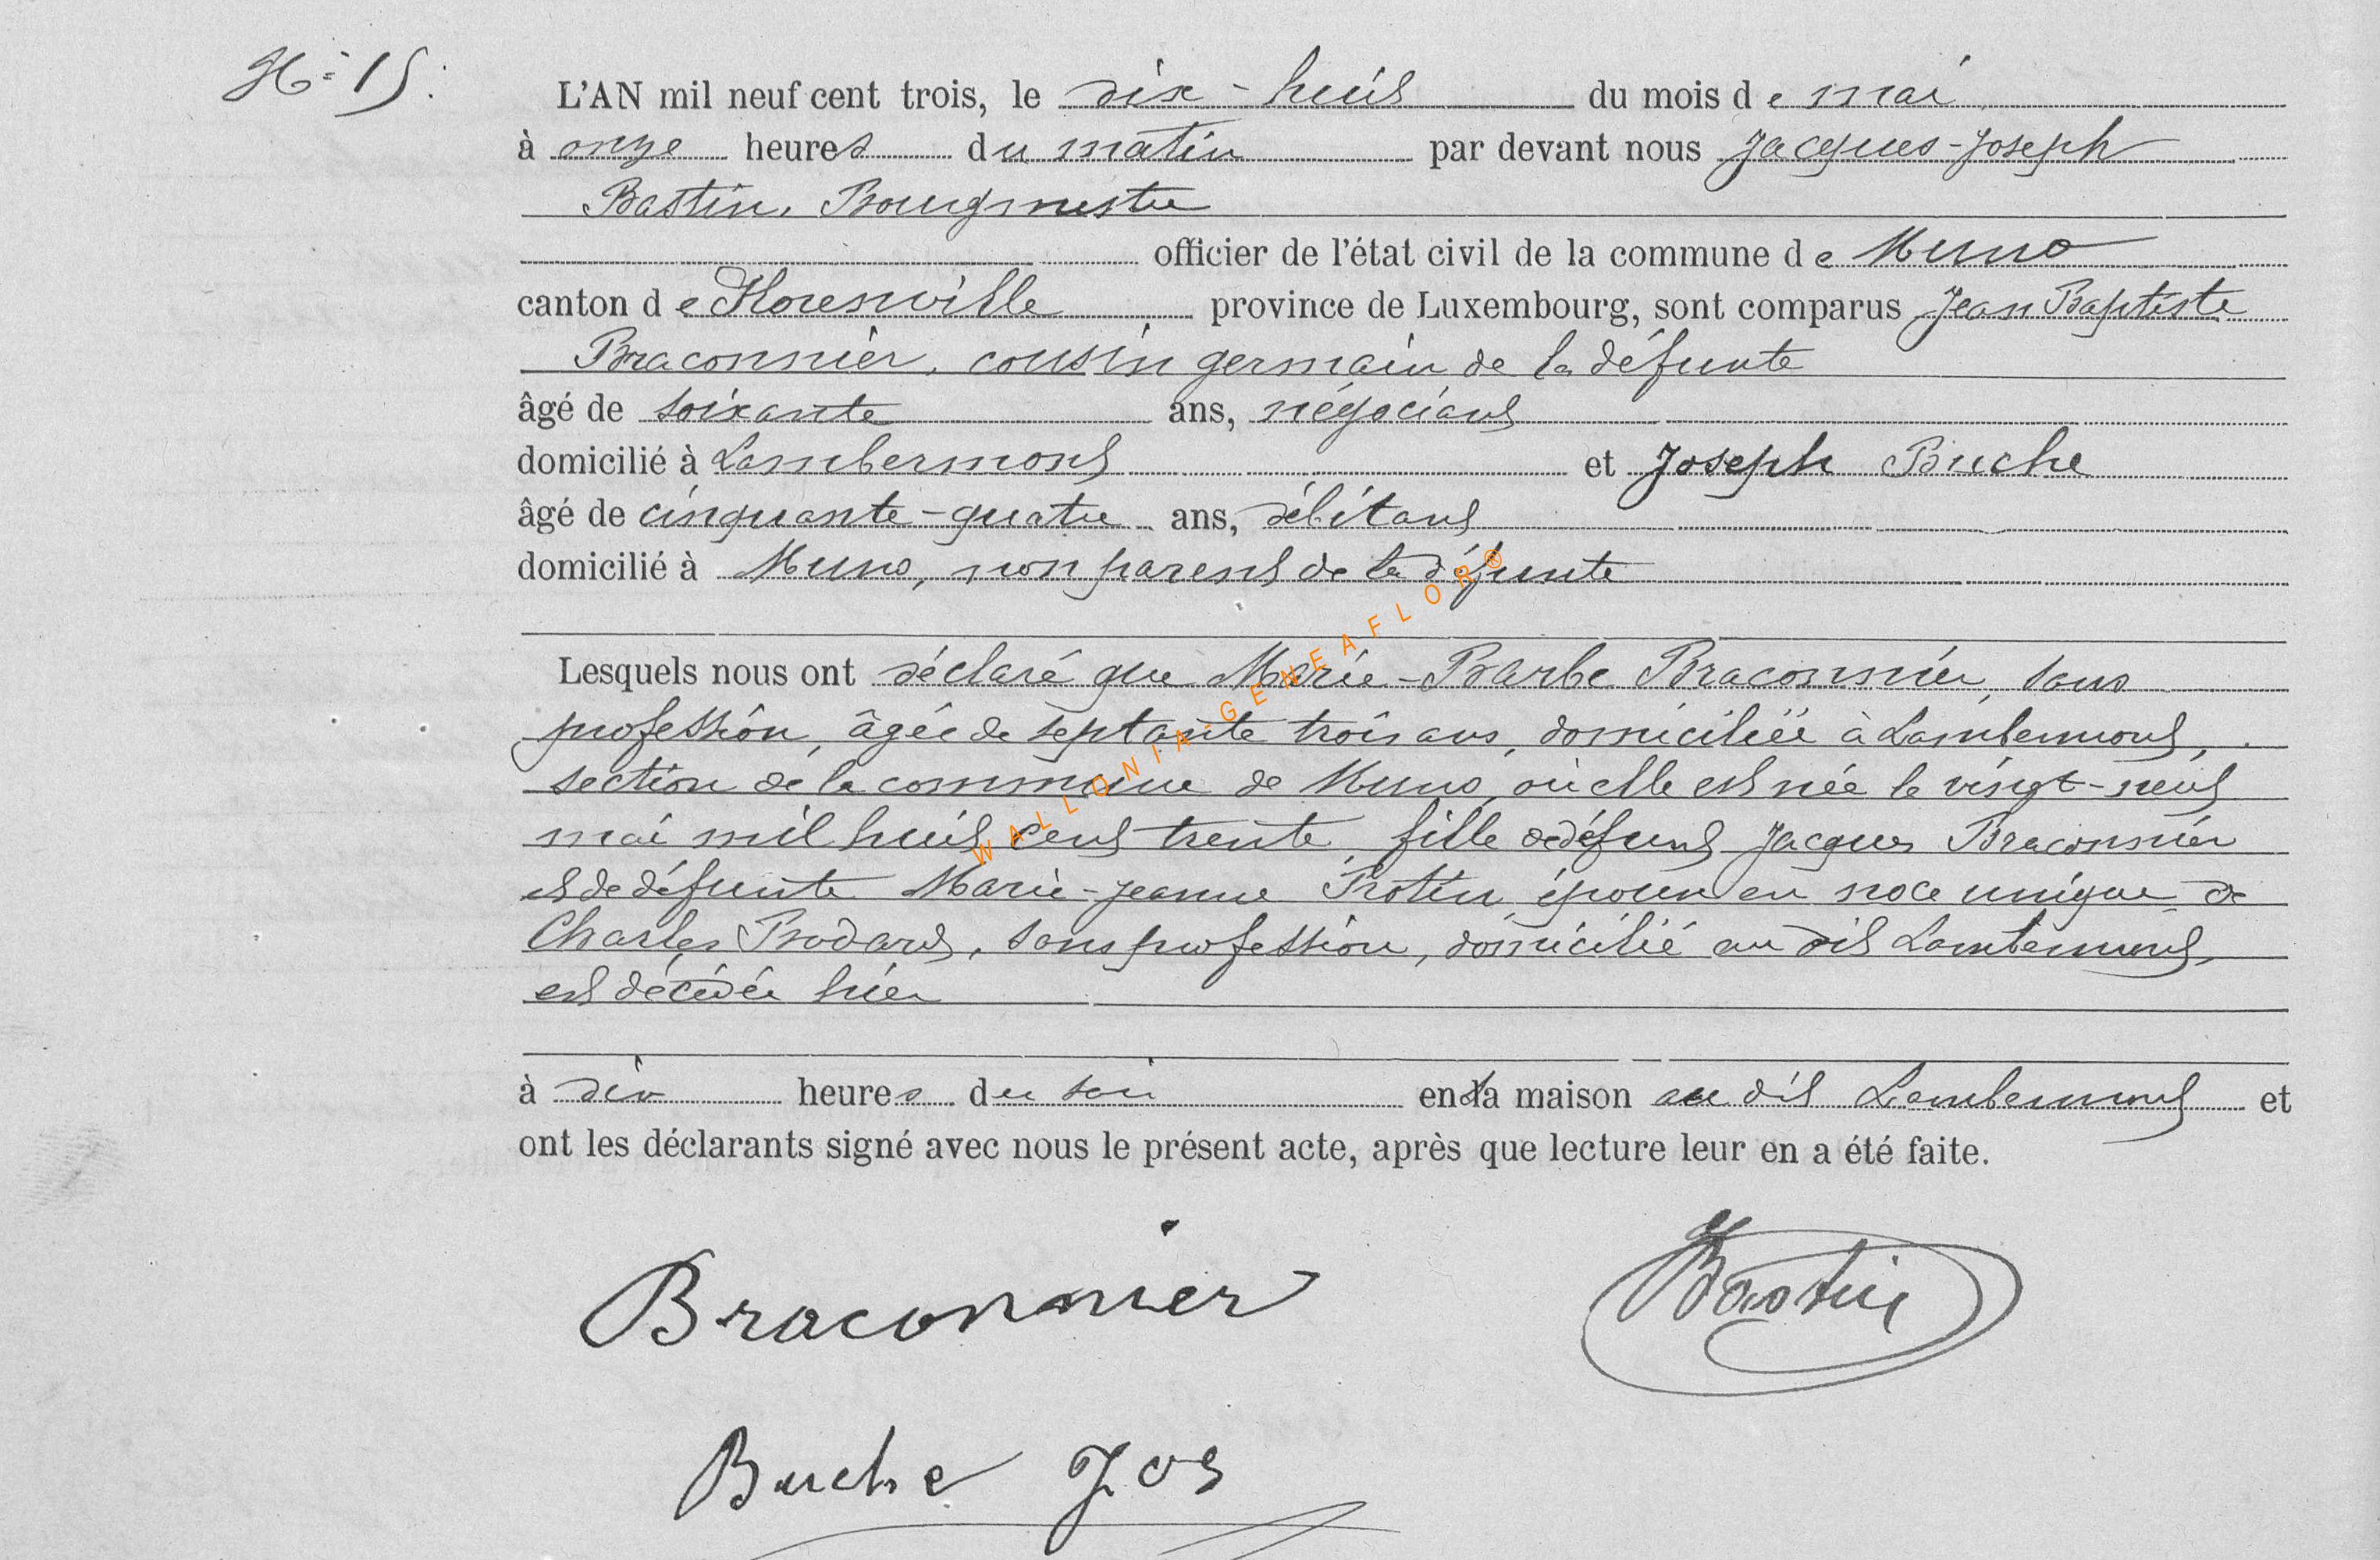 N° 15.
L'AN mil neuf cent trois, le dix-huit du mois de mai
à onze heures du matin par devant nous Jacques-Joseph
Bastin, Bourgmestre
officier de l'état civil de la commune de Muno
canton de Florenville province de Luxembourg, sont comparus Jean Baptiste
Braconnier, cousin germain de la défunte
âgé de soixante ans, négociant
domicilié à Lambermont et Joseph Buche
âgé de cinquante-quatre ans, débitant
domicilié à Muno, non parent de la défunte
Lesquels nous ont déclaré que Marie-Barbe Braconnier, sans
profession, âgée de septante trois ans, domiciliée à Lambermont,
section de la commune de Muno, où elle est née le vingt-neuf
mai mil huit cent trente, fille de défunt Jacques Braconnier
et de défunte Marie-Jeanne Protin, épouse en noce unique de
Charles Prodard, sans profession, domicilié au dit Lambermont,
est décédée hier
à dix heures du soir en la maison au dit Lambermont et
ont les déclarants signé avec nous le présent acte, après que lecture leur en a été faite.
Braconnier
Bastin
Buche Jos
WALLONIA-GENEAFLOR®